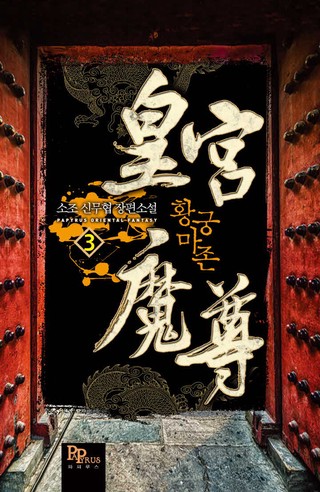 皇宮
황궁
마존
소조 신무협 장편소설
PAPYRUS ORIENTAL FANTASY
3
魔尊
PAPYRUS
파피루스